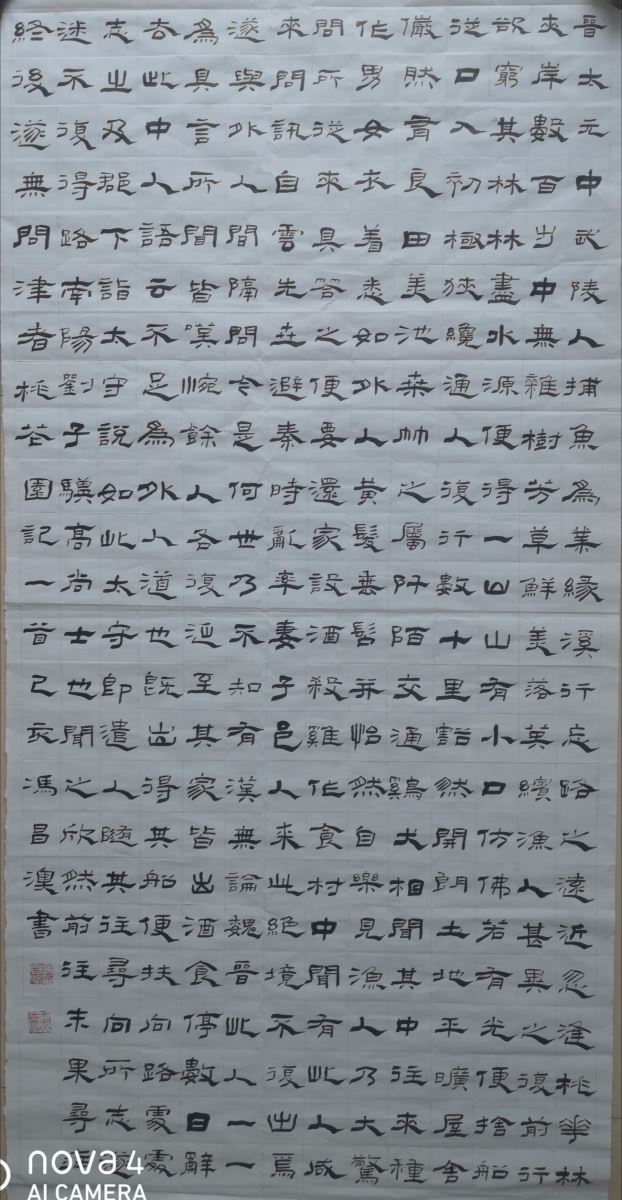 晉太元中武陵人捕魚為業緣溪行忘路之遠近忽逢桃華林
夾岸數百步中無雜樹芳草鮮美落英繽漁人甚異之復前行
欲窮其林林盡水源便得一山山有小口仿佛若有光便捨船
從口入初極狹纔通人復行數十里豁然開朗土地平曠屋舍
儼然有良田美池桑竹之屬阡陌交通鷄犬相聞其中往來種
作男女衣着悉如外人黃髮垂髫并怡然自樂見漁人乃大驚
問所從來具答之便要還家設酒殺雞作食村中聞有此人咸
來問訊自雲先世避秦時亂率妻子邑人來此絕境不復出焉
遂與外人間隔問今是何世乃不知有漢無論魏晉此人一一
為具言所聞皆嘆惋餘人各復延至其家皆出酒食停數日辭
去此中人語云不足為外人道也既出得其船便扶向路處處
志之及郡下詣太守說如此太守即遣人隨其往尋向所志遂
迷不復得路南陽劉子驥高尚士也聞之欣然前往未果尋病
終後遂無問津者桃花園記一首己亥馮昌澳書
nova 4
AI CAMERA